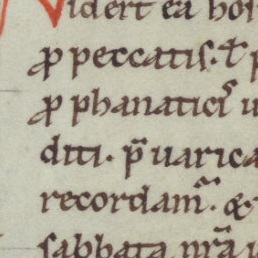 Viderit ea hos
ꝓ peccatis. t̄ p
ꝓ phanaticis u
diti. p̄uarica
recordam̃. &
sabbata nr̃a u